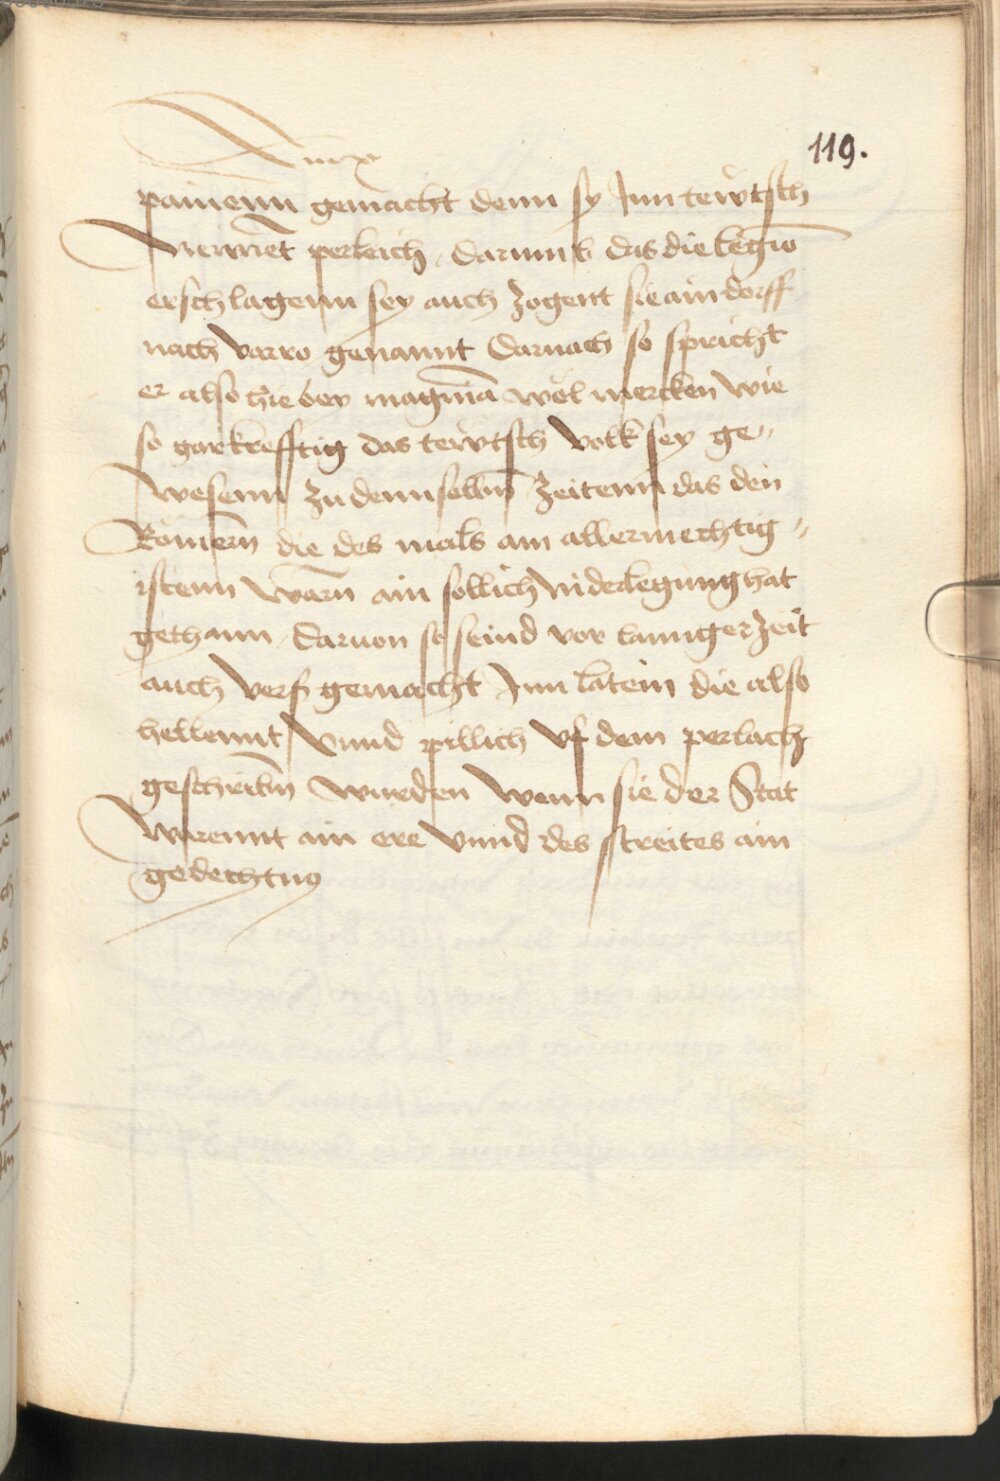 119.
painenn gemacht denn sy Jnn tewtsch
Nennet perleich. darumb das die legion
erschlagenn sey auch zogent sie ain dorff
nach varro genannt Darnach so spricht
er also hie bey mag man wol mercken wie
so gar krefftig das tewtsch volk sey ge-
wesenn zu dennselbn zeitenn das den
Römern die des mals am allermechtig-
istenn warn ain sollich Niderlegung hat
gethann. Daruon so seind vor lannger zeit
auch vers gemacht Jnn latein die also
hellennt Vnnd pillich vf dem perlach
geschribn wurden wann sie der Stat
Warennt ain ere Vnnd des streites ain
gedechtnus